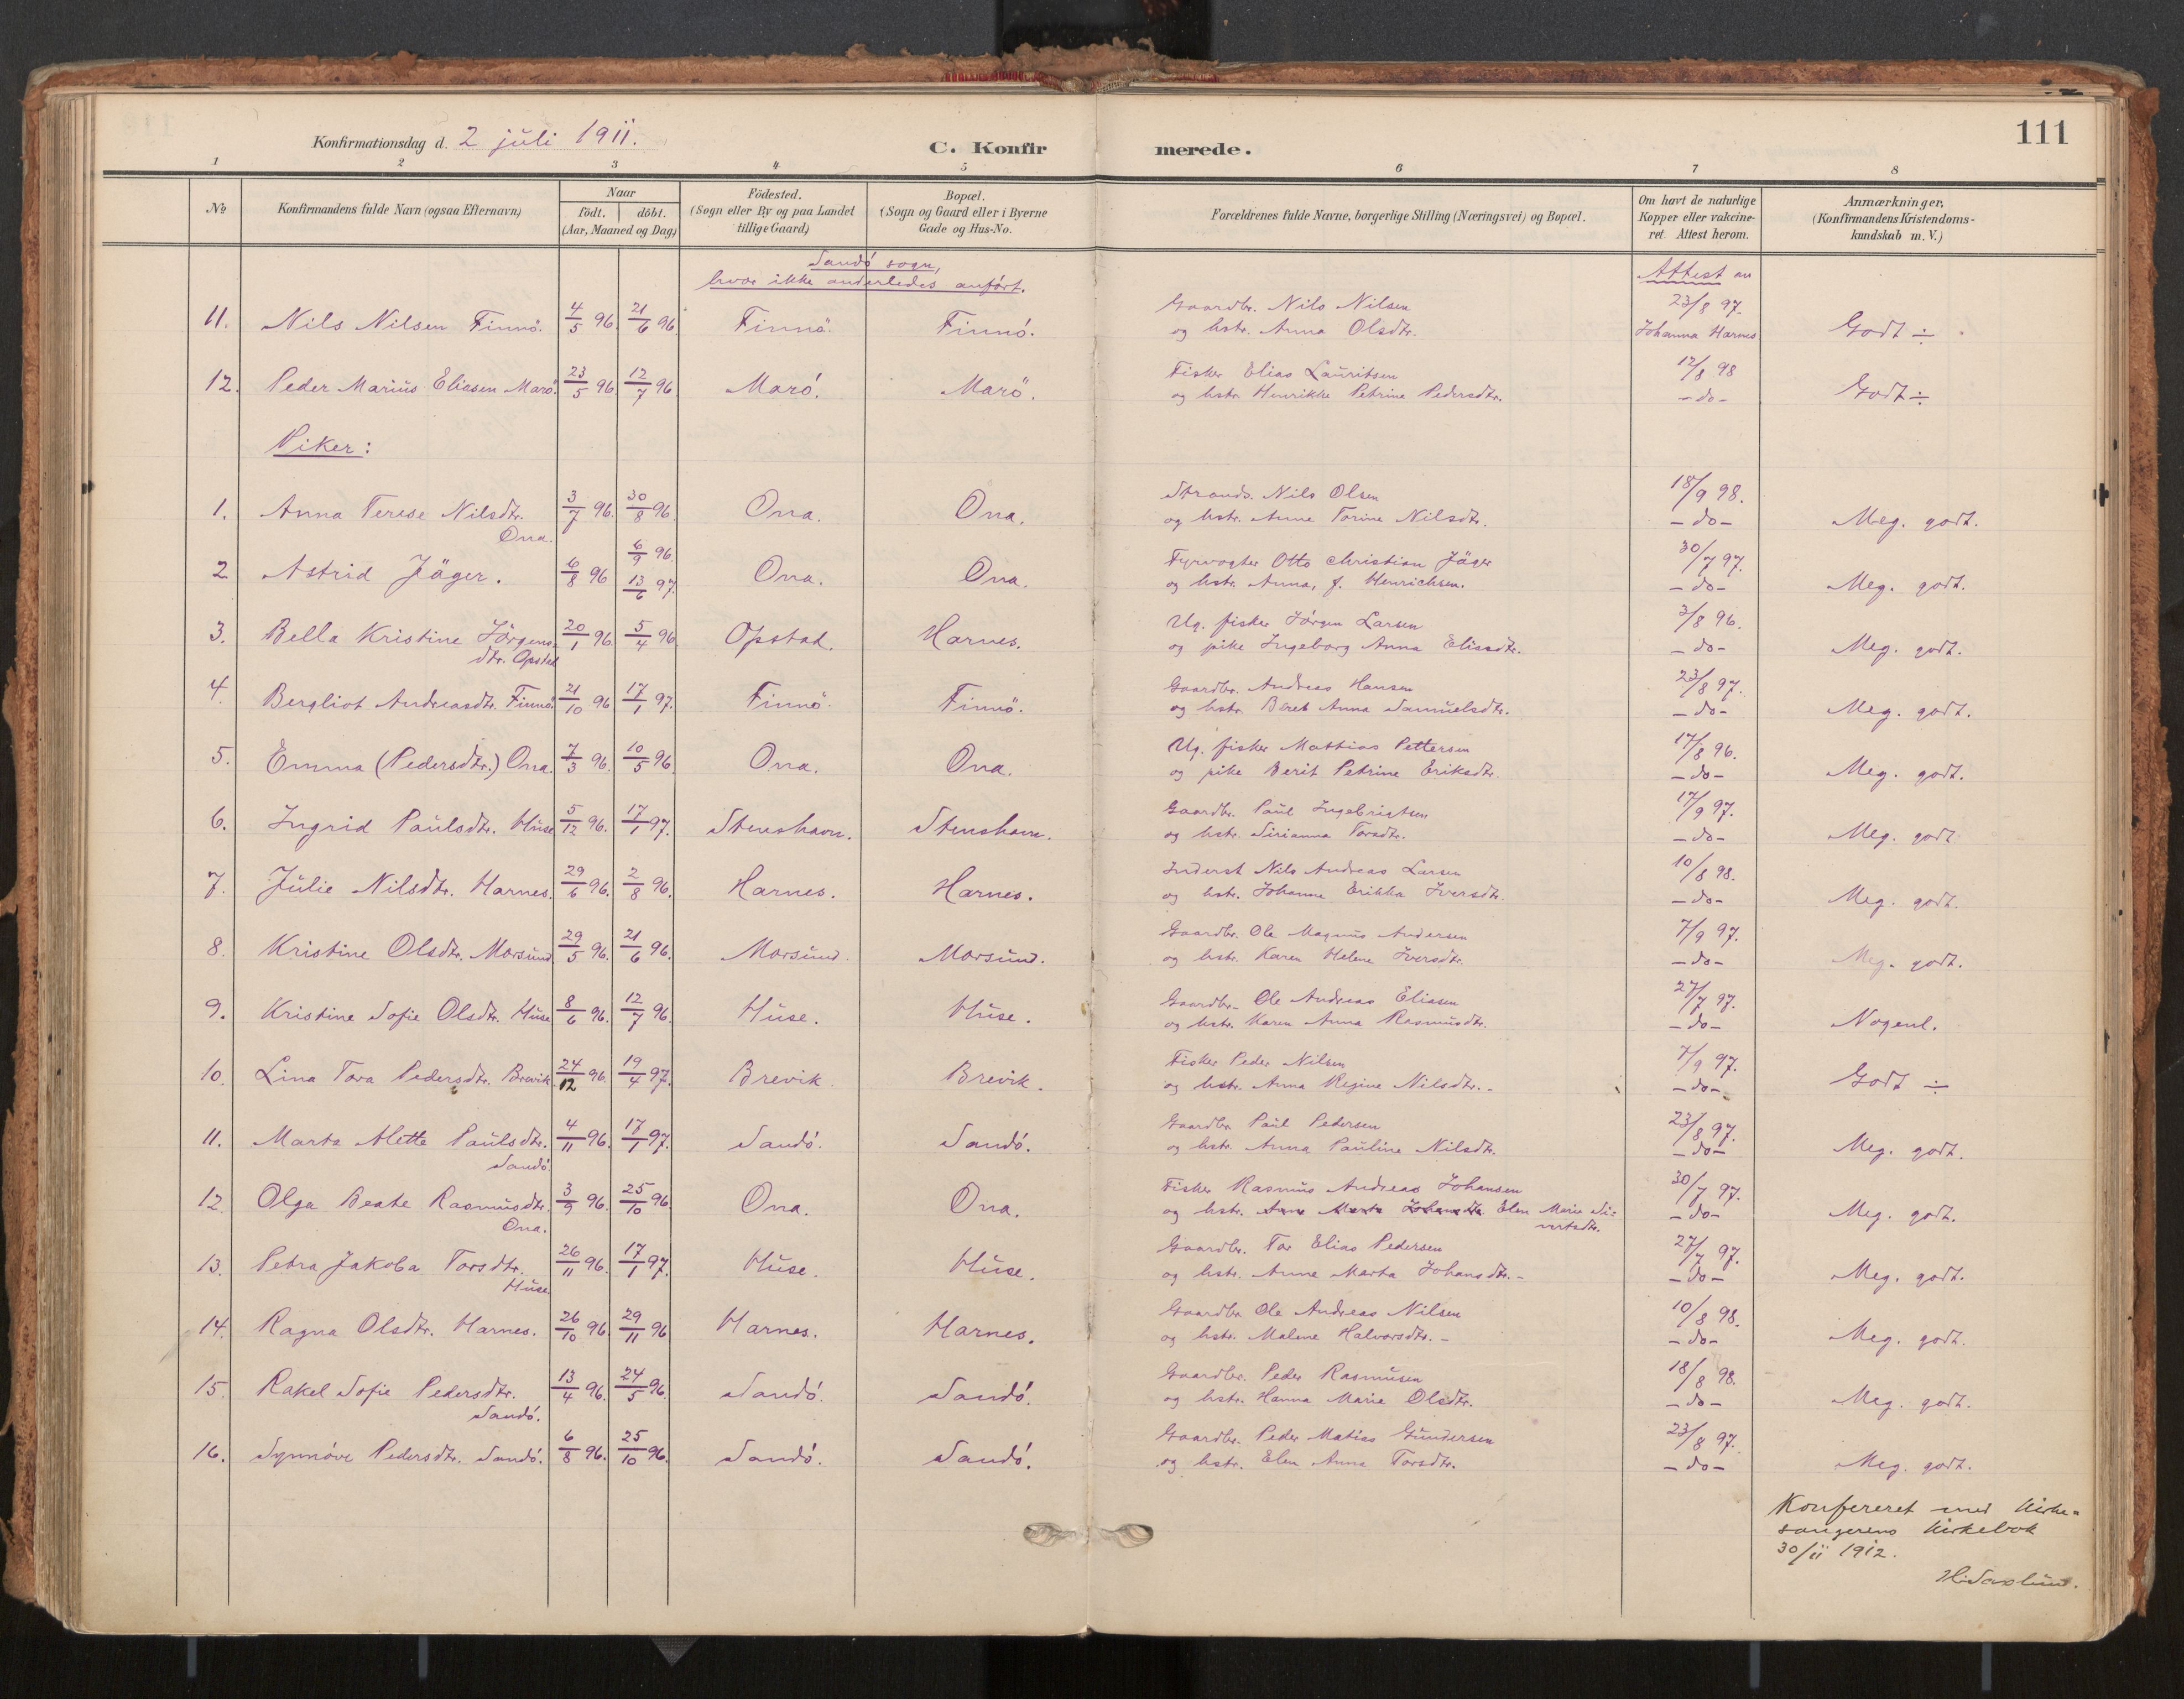 Konfirmationsdag d. 2 juli 1911.
C. Konfirmerede.
111
1 2 3 4 5 6 7 8
№ Konfirmandens fulde Navn (ogsaa Efternavn) Naar födt. döbt. (Aar, Maaned og Dag) Födested. (Sogn eller By og paa Landet tillige Gaard) Bopæl. (Sogn og Gaard eller i Byerne Gade og Hus-No. Forældrenes fulde Navne, borgerlige Stilling (Næringsvei) og Bopæl. Om havt de naturlige Kopper eller vakcineret. Attest herom. Anmærkninger, (Konfirmandens Kristendomskundskab m. V.)
Sandö sogn,
hvor ikke anderledes anført.
Attest av
11. Nils Nilsen Finnö. 4/5 96. 21/6 96 Finnö. Finnö. Gaardbr. Nils Nilsen 23/8 97.
og hstr. Anna Olsdtr. Johanna Harnes Godt ÷
12. Peder Marius Eliasen Marö. 23/5 96. 12/7 96 Marö. Marö. Fisker Elias Lauritsen 12/8 98
og hstr. Henrikke Petrine Pedersdtr. - do - Godt ÷
Piker:
1. Anna Terese Nilsdtr. Ona. 3/7 96. 30/8 96. Ona. Ona. Strands. Nils Olsen 18/9 98.
og hstr. Anne Torine Nilsdtr. - do - Meg. godt.
2 Astrid Jäger. 6/8 96 6/9 96 13/6 97. Ona. Ona. Fyrvogter Otto Christian Jäger 30/7 97.
og hstr. Anna, f. Henrichsen. - do - Meg. godt.
3. Bella Kristine Jörgensdtr. Opstad 20/1 96. 5/4 96 Opstad. Harnes. Ug. fisker Jörgen Larsen 3/8 96.
og pike Ingeborg Anna Eliasdtr. - do - Meg. godt.
4. Bergliot Andreasdtr. Finnö. 21/10 96 17/1 97. Finnö. Finnö. Gaardbr. Andreas Hansen 23/8 97.
og hstr. Beret Anna Samuelsdtr. - do - Meg. godt.
5. Emma (Pedersdtr.) Ona. 7/3 96. 10/5 96. Ona. Ona. Ug. fisker Mattias Pettersen 17/8 96.
og pike Berit Petrine Eriksdtr. - do - Meg. godt.
6. Ingrid Paulsdtr. Huse 5/12 96. 17/1 97. Stenshavn. Stenshavn. Gaardbr. Paul Ingebrigtsen 17/9 97.
og hstr. Sirianna Torsdtr. - do - Meg. godt
7. Julie Nilsdtr. Harnes. 29/6 96. 2/8 96. Harnes. Harnes. Inderst Nils Andreas Larsen 10/8 98.
og hstr. Johanne Erikka Iversdtr. - do - Meg. godt.
8. Kristine Olsdtr. Morsund 29/5 96. 21/6 96. Morsund. Morsund. Gaardbr. Ole Magnus Andersen 7/9 97.
og hstr. Karen Helene Iversdtr. - do - Meg. godt.
9. Kristine Sofie Olsdtr. Huse 8/6 96. 12/7 96. Huse. Huse. Gaardbr. Ole Andreas Eliasen 27/7 97.
og hstr. Karen Anna Rasmusdtr. - do - Nogenl.
10. Lina Tora Pedersdtr. Brevik 24/12 96. 19/4 97. Brevik. Brevik. Fisker Peder Nilsen 7/9 97.
og hstr. Anna Regine Nilsdtr. - - do - Godt ÷
11. Marta Alette Paulsdtr. Sandö. 4/11 96. 17/1 97. Sandö. Sandö. Gaardbr Paul Pedersen 23/8 97.
og hstr. Anna Pauline Nilsdtr. - do - Meg. godt.
12. Olga Beate Rasmusdtr. Ona. 3/9 96. 25/10 96. Ona. Ona. Fisker Rasmus Andreas Johansen 30/7 97.
og hstr. Anne Marta Johansdtr. Elen Marie Sivertsdtr. - do - Meg. godt.
13. Petra Jakoba Torsdtr. Huse 26/11 96. 17/1 97. Huse. Huse. Gaardbr. Tor Elias Pedersen 27/7 97.
og hstr. Anne Marta Johansdtr. - - do - Meg. godt.
14. Ragna Olsdtr. Harnes. 26/10 96. 29/11 96 Harnes. Harnes. Gaardbr Ole Andreas Nilsen 10/8 98.
og hstr. Malene Halvorsdtr. - - do - Meg. godt.
15. Rakel Sofie Pedersdtr. Sandö. 13/4 96. 24/5 96. Sandö. Sandö. Gaardbr. Peder Rasmussen 18/8 98.
og hstr. Hanna Marie Olsdtr. - do - Meg. godt.
16. Synnöve Pedersdtr. Sandö. 6/8 96. 25/10 96. Sandö. Sandö. Gaardbr. Peder Matias Gundersen 23/8 97.
og hstr. Elen Anna Torsdtr. - do - Meg. godt.
Konfereret med Kirke=
sangerens Kirkebok
30/11 1912.